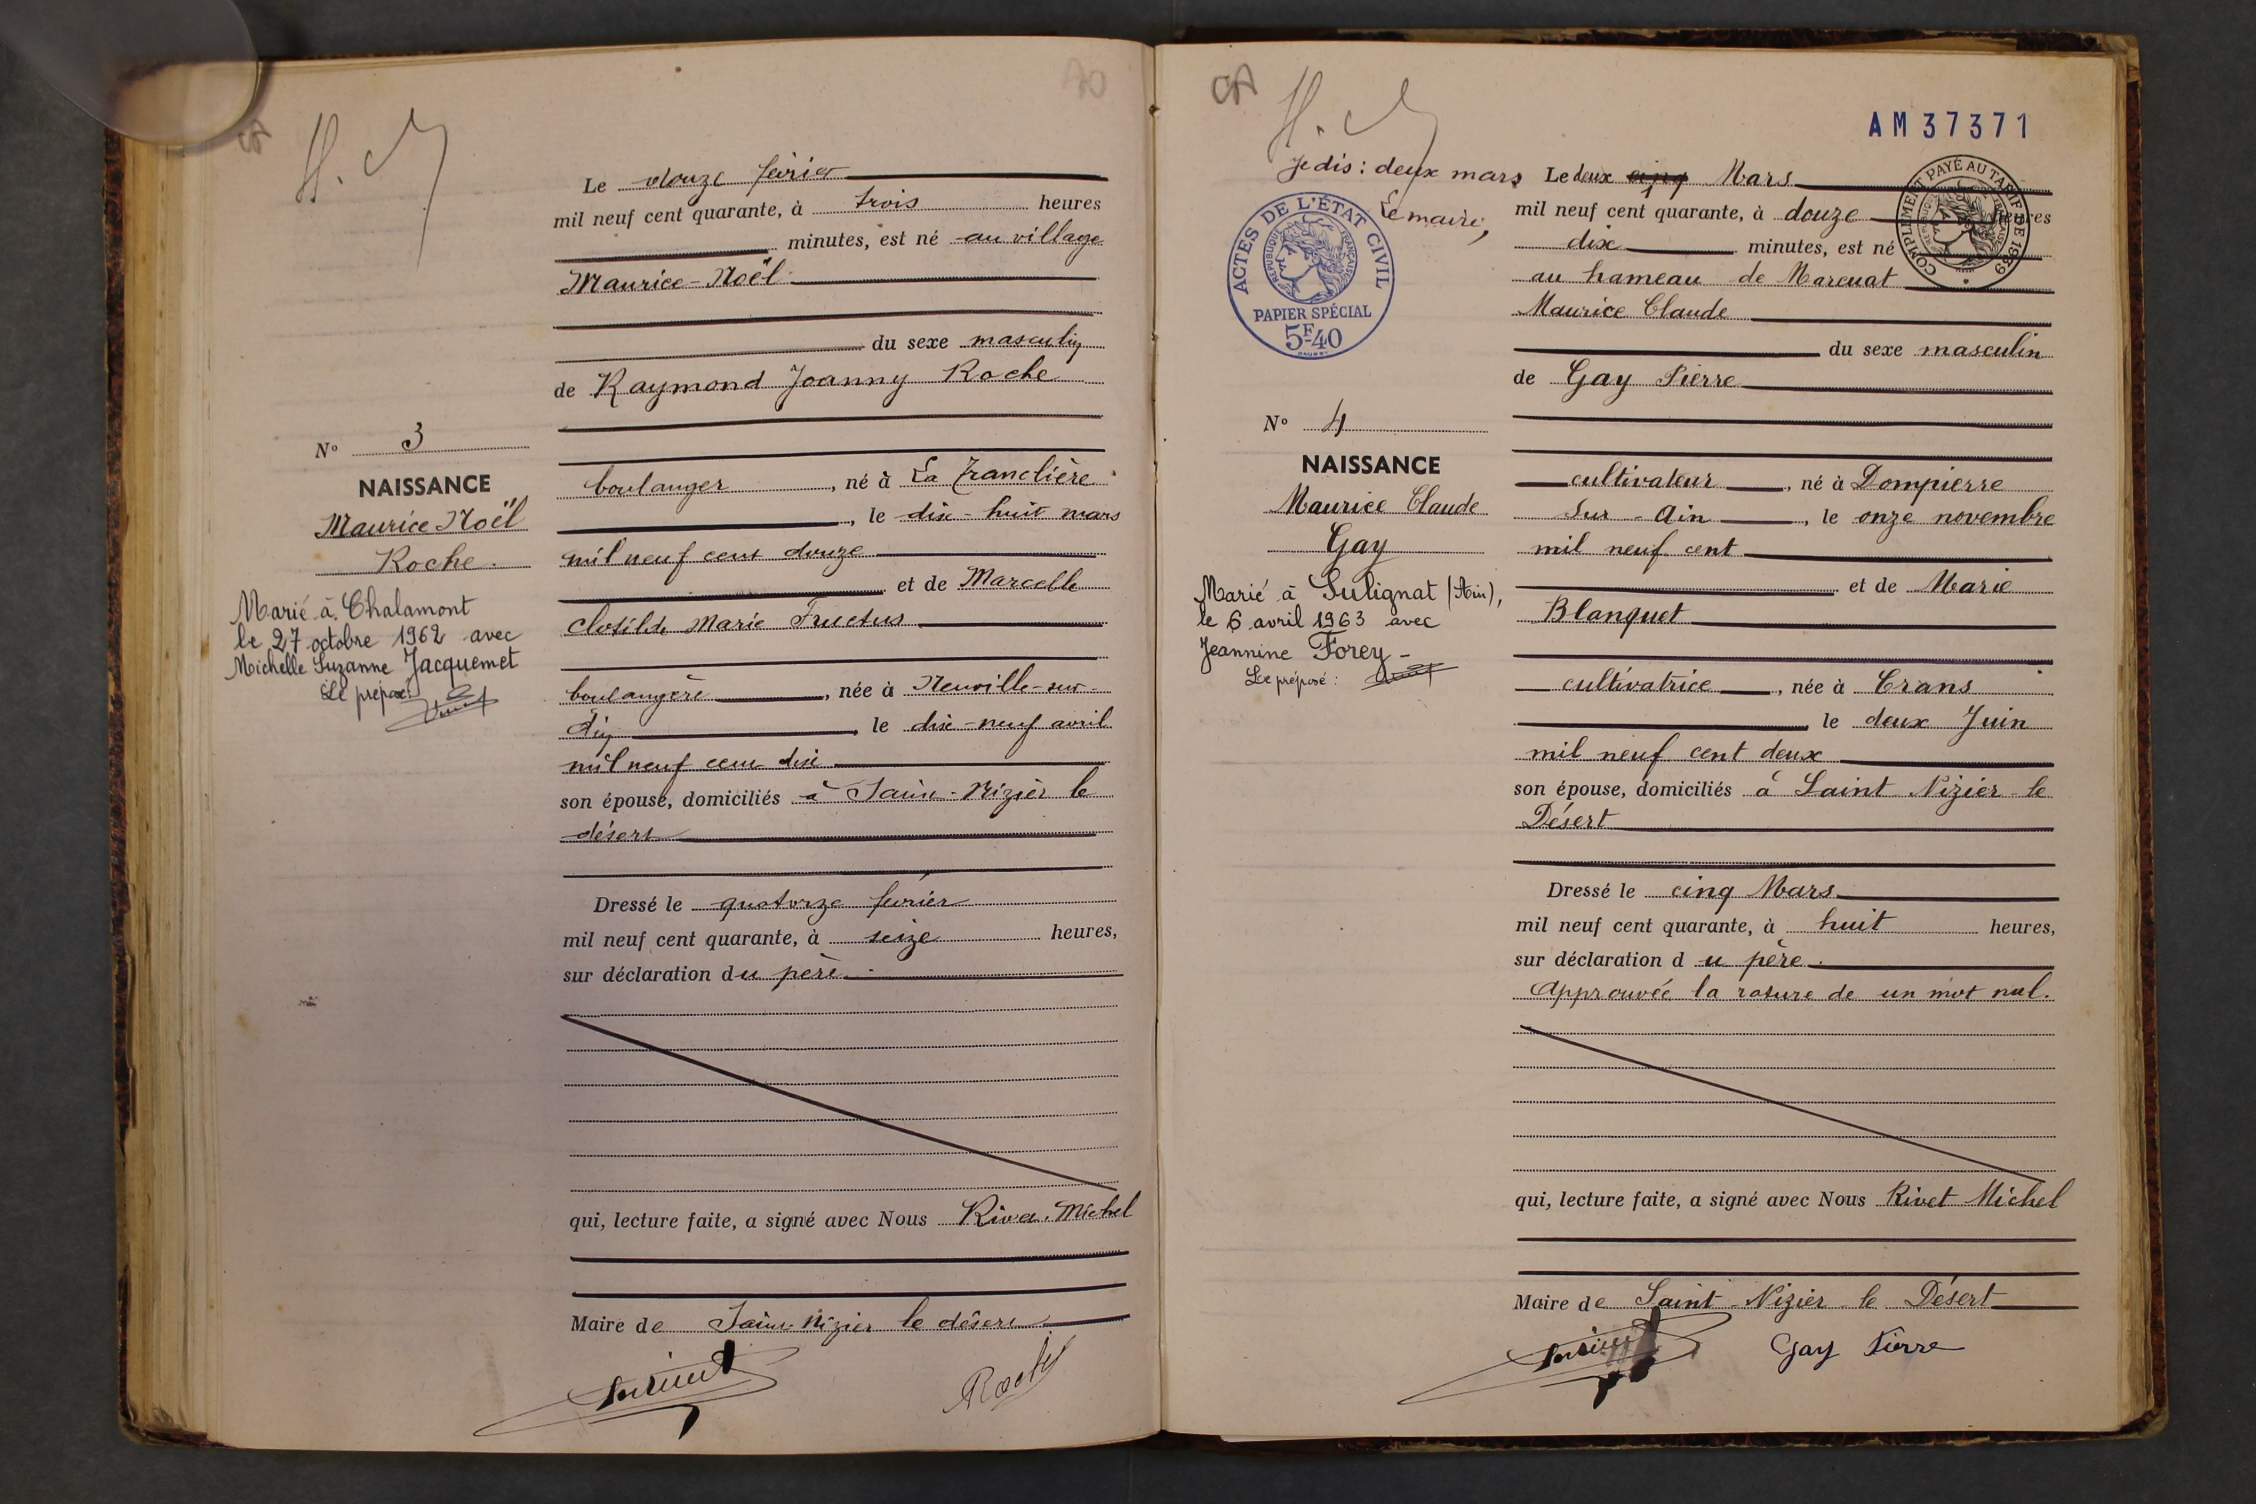 Le douze février
mil neuf cent quarante, à trois heures
minutes, est né au village
Maurice-Noël
du sexe masculin
de Raymond Joanny Roche
N° 3
NAISSANCE
Maurice Noël
Roche.
Marié à Chalamont
le 27 octobre 1962 avec
Michelle Suzanne Jacquemet
Le préposé:
boulanger, né à La Tranclière
, le dix-huit mars
mil neuf cent douze
et de Marcelle
Clotilde Marie Fructus
boulangère, née à Neuville-sur-
Ain, le dix-neuf avril
mil neuf cent dix
son épouse, domiciliés à Saint-Nizier le
désert
Dressé le quatorze février
mil neuf cent quarante, à seize heures,
sur déclaration du père.
qui, lecture faite, a signé avec Nous Rivet Michel
Maire de Saint-Nizier le désert
Roche
AM37371
Je dis: deux mars
Le maire,
ACTES DE L'ÉTAT CIVIL
RÉPUBLIQUE FRANÇAISE
PAPIER SPÉCIAL
5F.40
COMPLÉMENT PAYÉ AU TARIF DE 1939
Le deux cinq Mars
mil neuf cent quarante, à douze heures
dix minutes, est né
au hameau de Mareuat
Maurice Claude
du sexe masculin
de Gay Pierre
N° 4
NAISSANCE
Maurice Claude
Gay
Marié à Sulignat (Ain),
le 6 avril 1963 avec
Jeannine Forey -
Le préposé:
cultivateur, né à Dompierre
sur-Ain, le onze novembre
mil neuf cent
et de Marie
Blanquet
cultivatrice, née à Crans
le deux Juin
mil neuf cent deux
son épouse, domiciliés à Saint Nizier-le
Désert
Dressé le cinq Mars
mil neuf cent quarante, à huit heures,
sur déclaration d u père.
Approuvée la rature de un mot nul.
qui, lecture faite, a signé avec Nous Rivet Michel
Maire de Saint-Nizier le Désert
Gay Pierre